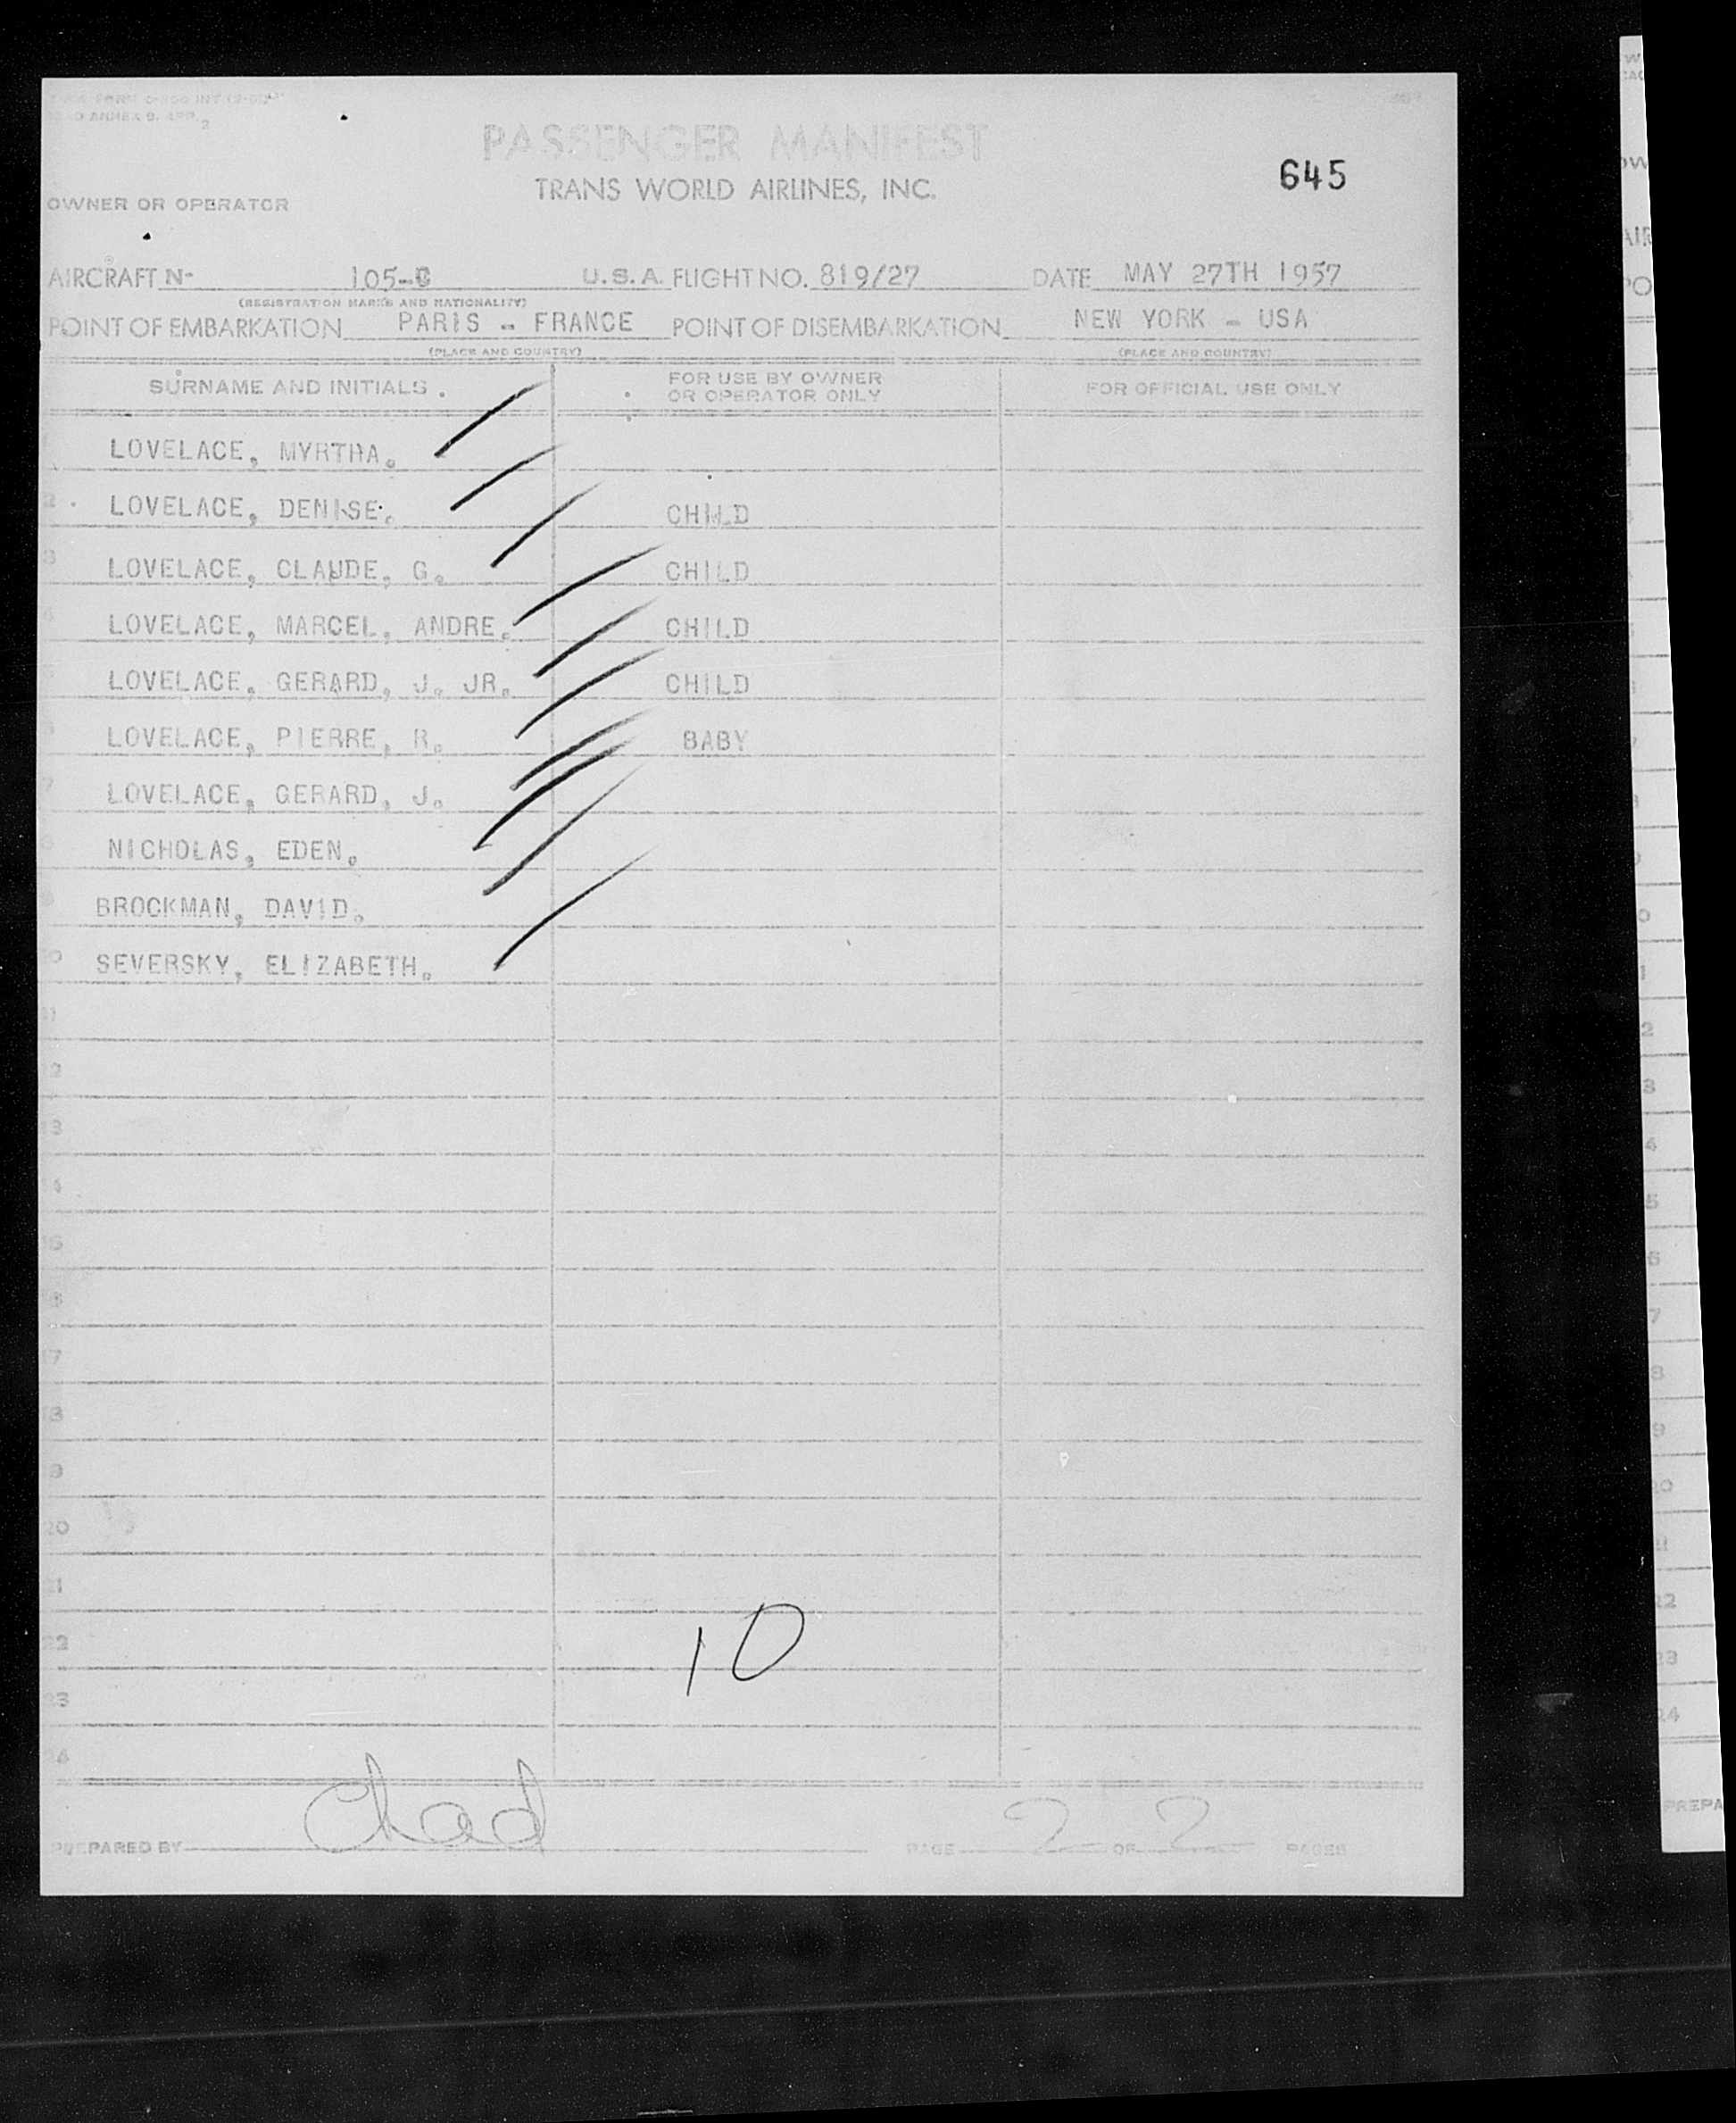 PASSENGER MANIFEST
645
TRANS WORLD AIRLINES, INC.
OWNER OR OPERATOR
AIRCRAFT N- 105-C U.S.A. FLIGHT NO. 819/27 DATE MAY 27TH 1957
(REGISTRATION MARKS AND NATIONALITY)
POINT OF EMBARKATION PARIS - FRANCE POINT OF DISEMBARKATION NEW YORK - USA
(PLACE AND COUNTRY) (PLACE AND COUNTRY)
SURNAME AND INITIALS FOR USE BY OWNER OR OPERATOR ONLY FOR OFFICIAL USE ONLY
LOVELACE, MYRTHA.
2 LOVELACE, DENISE. CHILD
3 LOVELACE, CLAUDE, G. CHILD
LOVELACE, MARCEL, ANDRE. CHILD
LOVELACE, GERARD, J. JR. CHILD
LOVELACE, PIERRE, R. BABY
7 LOVELACE, GERARD, J.
NICHOLAS, EDEN.
BROCKMAN, DAVID.
10 SEVERSKY, ELIZABETH.
11
12
13
14
15
16
17
18
19
20
21
22 10
23
24
PREPARED BY Chad PAGE 2 OF 2 PAGES